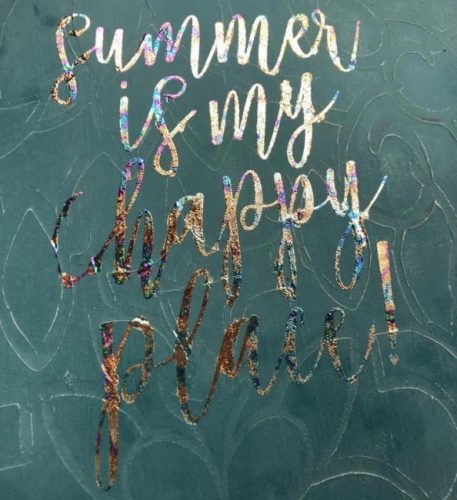 summer
is my
happy
place!